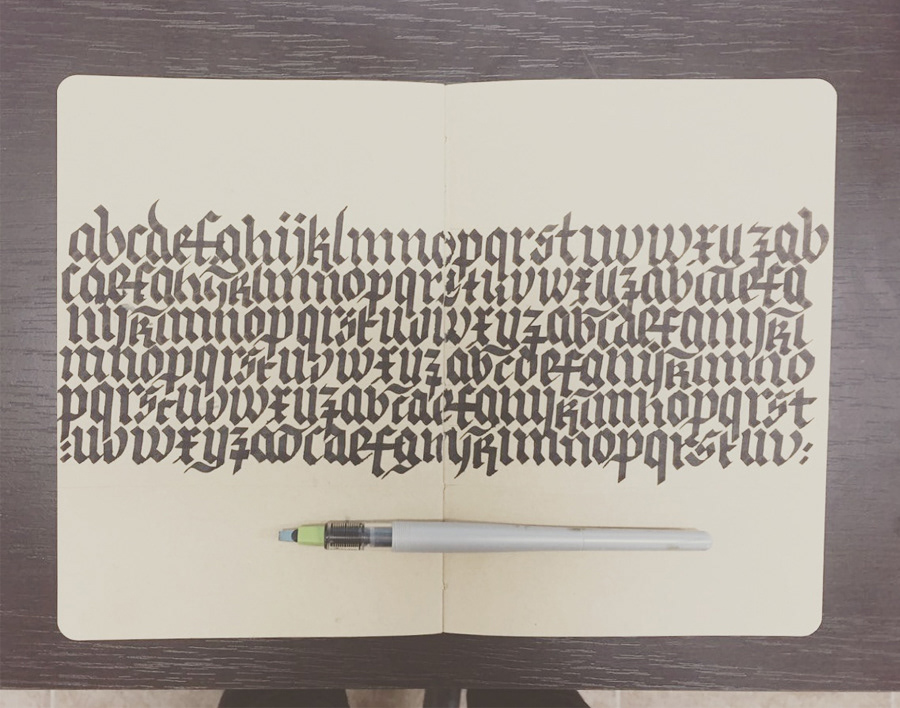 abcdefghijklmnopqrstuvwxyzab
cdefghijklmnopqrstuvwxyzabcdefg
hijklmnopqrstuvwxyzabcdefghijkl
mnopqrstuvwxyzabcdefghijklmno
pqrstuvwxyzabcdefghijklmnopqrst
:uvwxyzabcdefghijklmnopqrstuv: